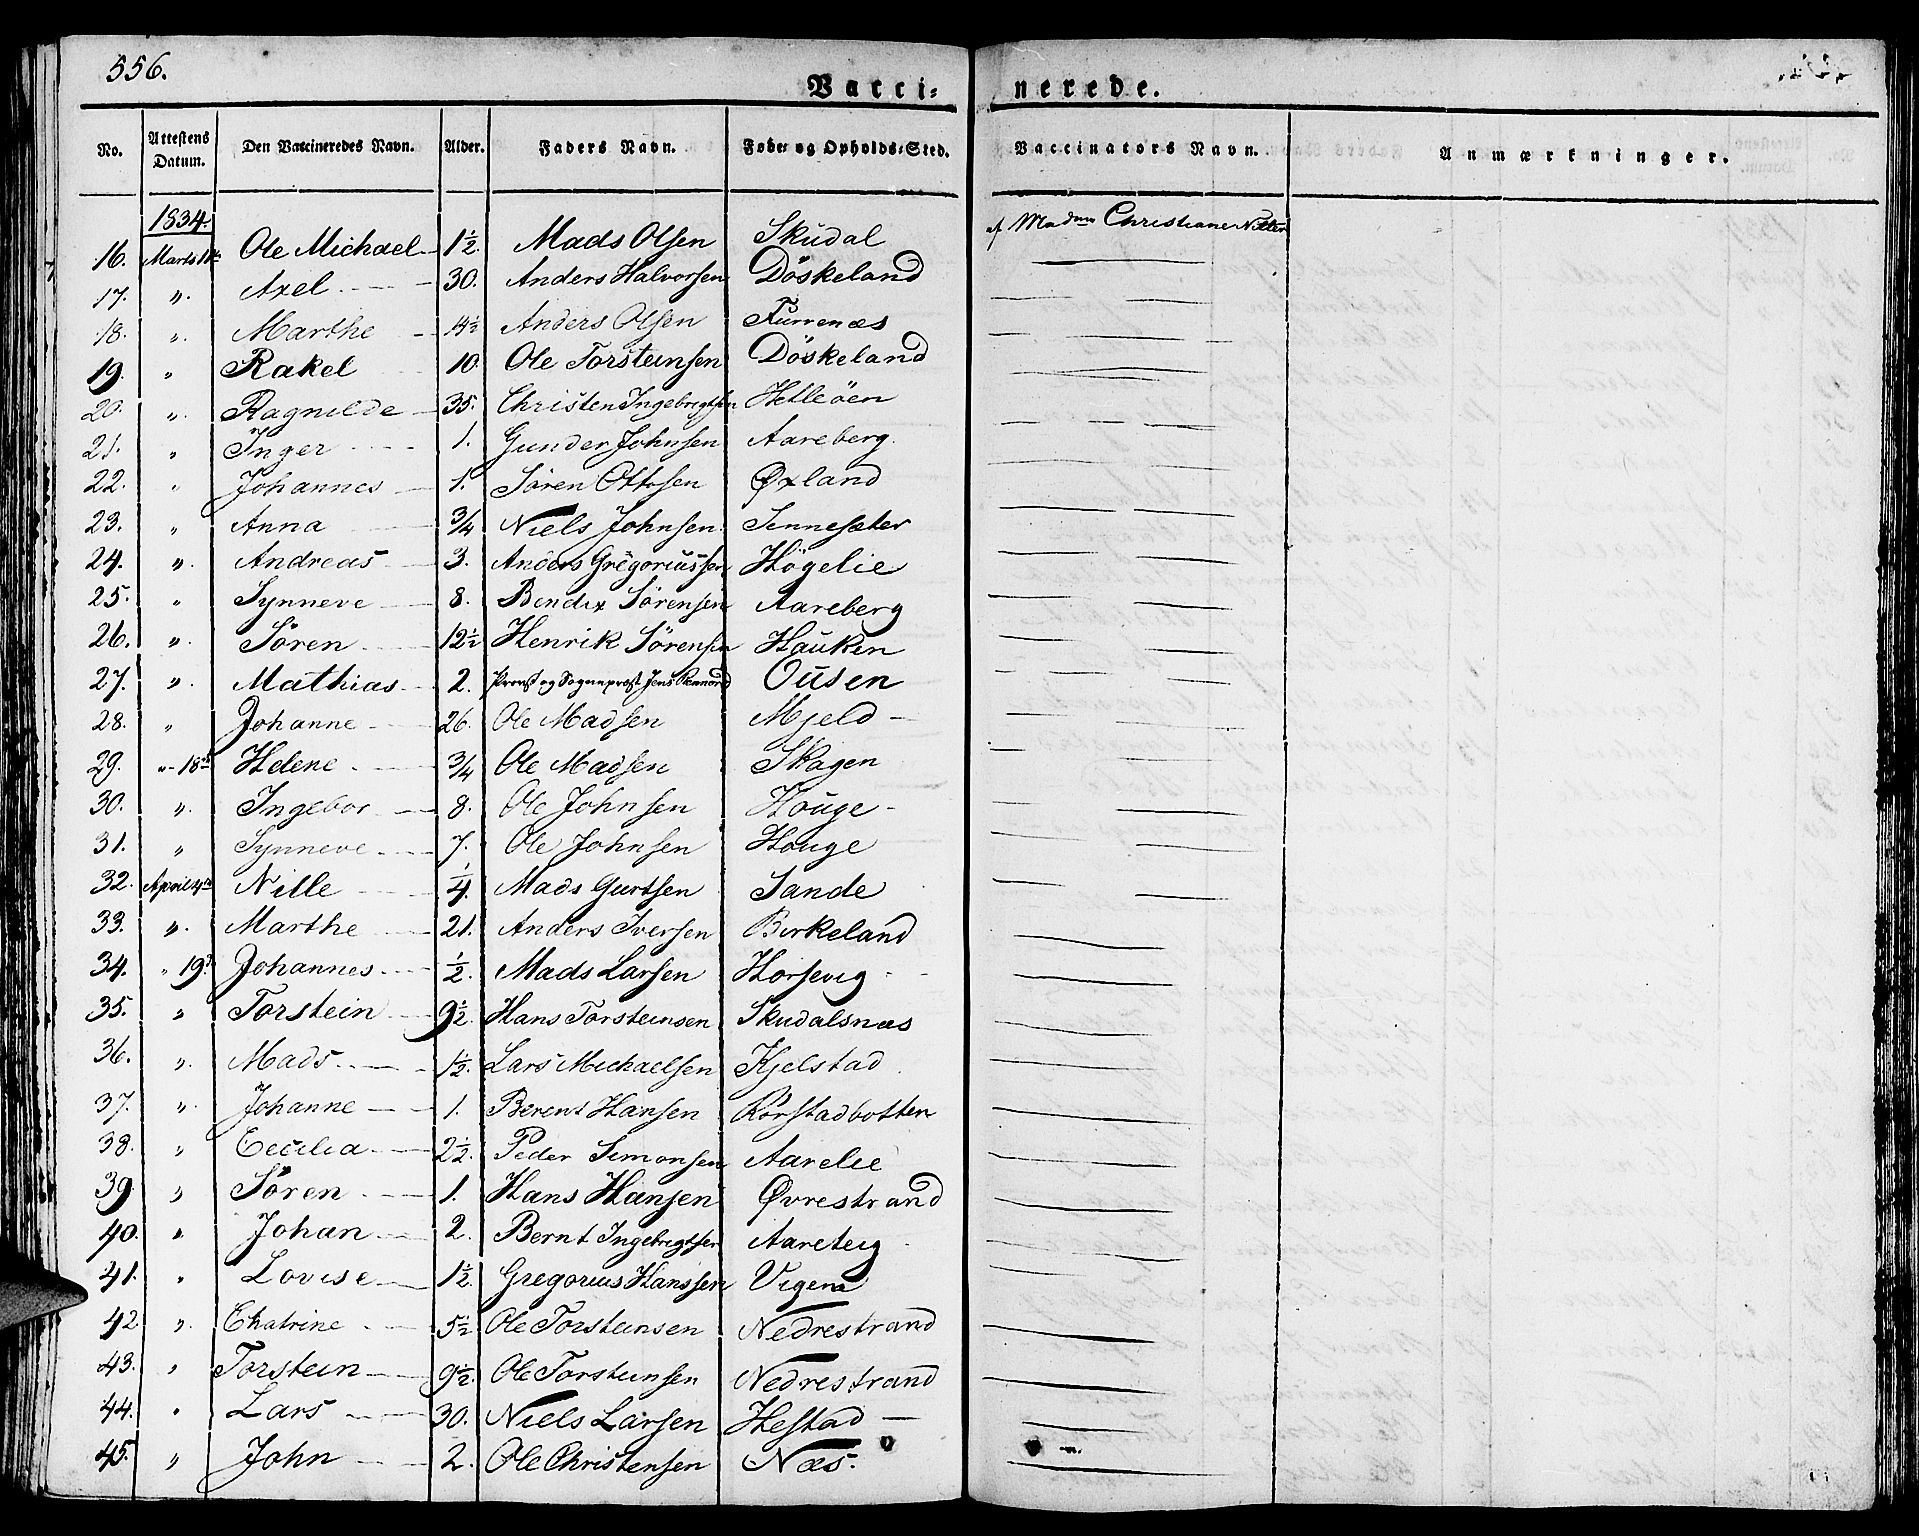 556.
Vacci- nerede.
No. Attestens Datum. Den Vaccineredes Navn. Alder. Faders Navn. Føde- og Opholds-Sted. Vaccinators Navn. Anmærkninger.
1834.
16. Marts Ole Michael 1½ Mads Olsen Skudal af Madm Christiane
17. ". Axel 30. Anders Halvorsen Döskeland
18. ". Marthe 14½ Anders Olsen Furrenæs
19. " Rakel 10. Ole Torsteinsen Döskeland
20. ". Ragnilde 35. Christen Ingebrigtsen Hetleöen
21. " Inger 1. Gunder Johnsen Aareberg.
22. " Johannes 1. Sören Ottosen Øxland
23. " Anna ¾ Niels Johnsen Sennesæter
24. ". Andreas 3. Anders Gregoriussen Högelie
25. " Synneve 8. Bendix Sörensen Aareberg
26. ". Sören 12½ Henrik Sörensen Hauken
27. ". Mathias 2. Provst og Sogneprest Jens Rennord Ousen
28. " Johanne 26. Ole Madsen Mjeld
29. " 18de Helene ¾ Ole Madsen Skagen
30. ". Ingebor 8. Ole Johnsen Houge
31. " Synneve 7. Ole Johnsen Houge
32. April 4de Nille ¼. Mads Gurtsen Sande
33. ". Marthe 21. Anders Iversen Birkeland
34. " 19de Johannes ½. Mads Larsen Horsevig
35. " Torstein 9½ Hans Torsteinsen Skudalsnæs
36. ". Mads 1½. Lars Michaelsen Kjelstad
37. ". Johanne 1. Berent Hansen Rörstadbotten
38. " Cecilia 2½. Peder Simonsen Aarelie
39. " Sören 1. Hans Hansen Øvrestrand
40. " Johan 2. Bernt Ingebrigtsen Aareteig
41. " Lovise 1½. Gregorius Hanssen Vigen
42 ". Chatrine 5½ Ole Torsteinsen Nedrestrand
43. " Torstein 9½. Ole Torsteinsen Nedrestrand
44. " Lars 30. Niels Larsen Hestad
45. " John 2. Ole Christensen Næs.